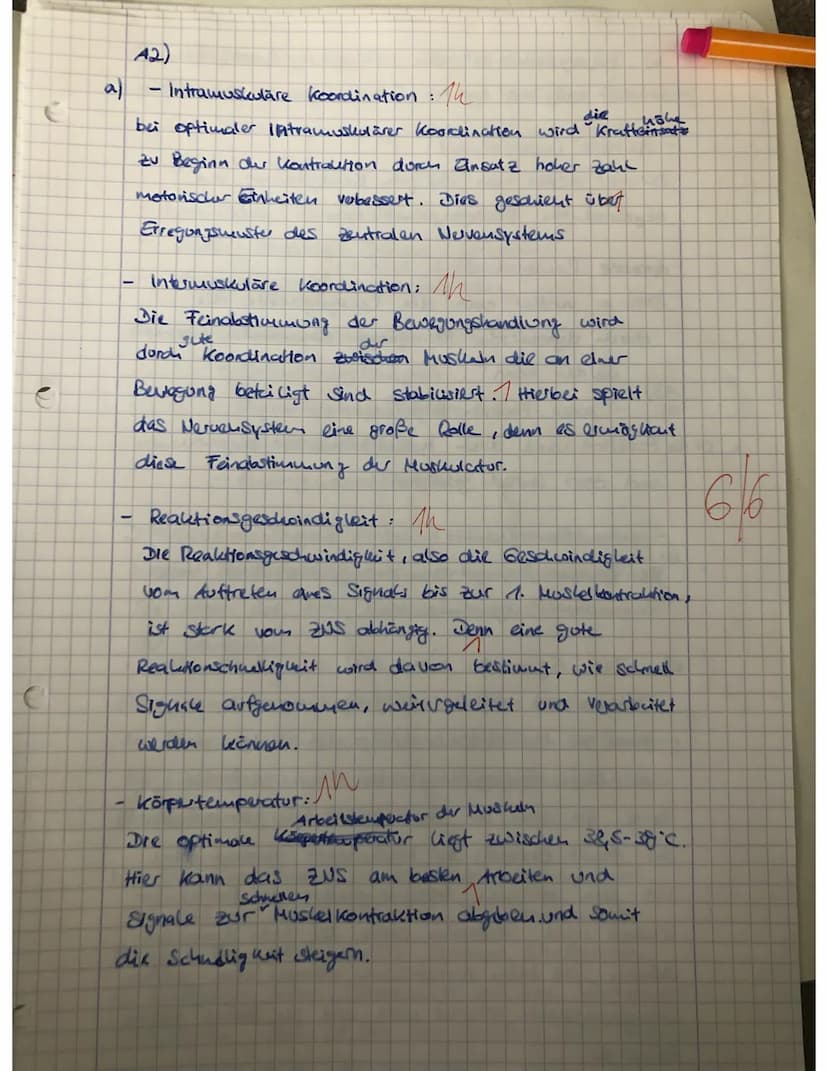 A2)
a) - Intramuskuläre Koordination : 1h
die höhe
bei optimaler Intramuskulärer Koordination wird Krafteinsatz
zu Beginn der Kontraktion durch Einsatz hoher Zahl
motorischer Einheiten verbessert. Dies geschieht über
Erregungsmuster des zentralen Nervensystems
- Intermuskuläre Koordination: 1h
Die Feinabstimmung der Bewegungshandlung wird
gute der
durch Koordination zwischen Muskeln die an einer
Bewegung beteiligt sind stabilisiert. 1 Hierbei spielt
das Nervensystem eine große Rolle, denn es ermöglicht
diese Feinabstimmung der Muskulatur.
6/6
- Reaktionsgeschwindigkeit : 1h
Die Reaktionsgeschwindigkeit, also die Geschwindigkeit
vom Auftreten eines Signals bis zur 1. Muskelkontraktion,
ist stark vom ZNS abhängig. Denn eine gute
1
Reaktionschnelligkeit wird davon bestimmt, wie schnell
Signale aufgenommen, weitergeleitet und verarbeitet
werden können.
- Körpertemperatur: 1h
Arbeitstemperatur der Muskeln
Die optimale Körpertemperatur liegt zwischen 38,5-39°C.
Hier kann das ZNS am besten Arbeiten und
schnellen 1
Signale zur Muskelkontraktion abgeben und somit
die Schnelligkeit steigern.